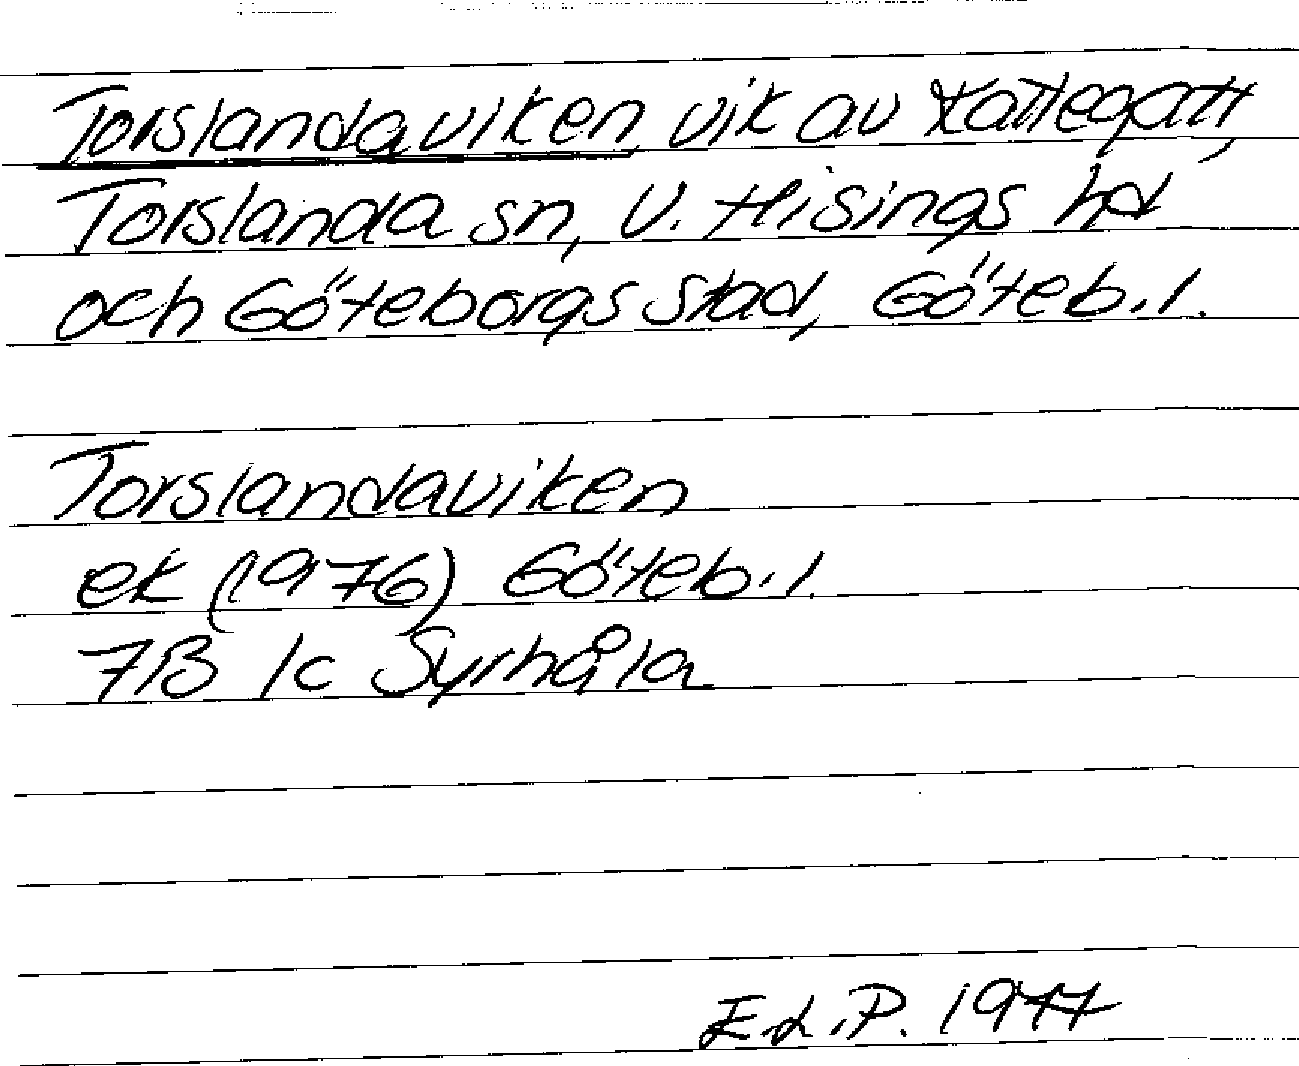 Torslandaviken, vik av Kattegatt,
Torslanda sn, V. Hisings hd
och Göteborgs stad, Göteb. l.
Torslandaviken
ek (1976) Göteb. l.
7B 1c Syrhåla
E.L.P. 1977